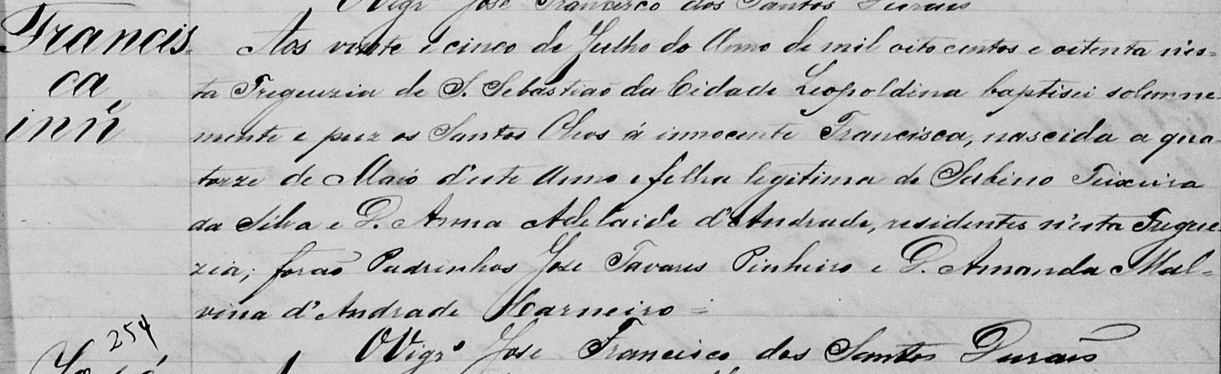 Vigrº José Francisco dos Santos Durais
Francis
ca,
inn
Aos vinte e cinco de Julho do Anno de mil oito centos e oitenta n'es-
ta Freguezia de S. Sebastiaõ da Cidade Leopoldina baptisei solemne
mente e puz os Santos Oleos á innocente Francisca, nascida a qua-
torze de Maio d'este Anno e filha legitima de Sabino Teixeira
da Silva e D. Anna Adelaide d'Andrade, residentes n'esta Fregue
zia; foraõ Padrinhos José Tavares Pinheiro e D. Amanda Mal-
vina d'Andrade Carneiro =
O Vigrº José Francisco dos Santos Durais
254
José